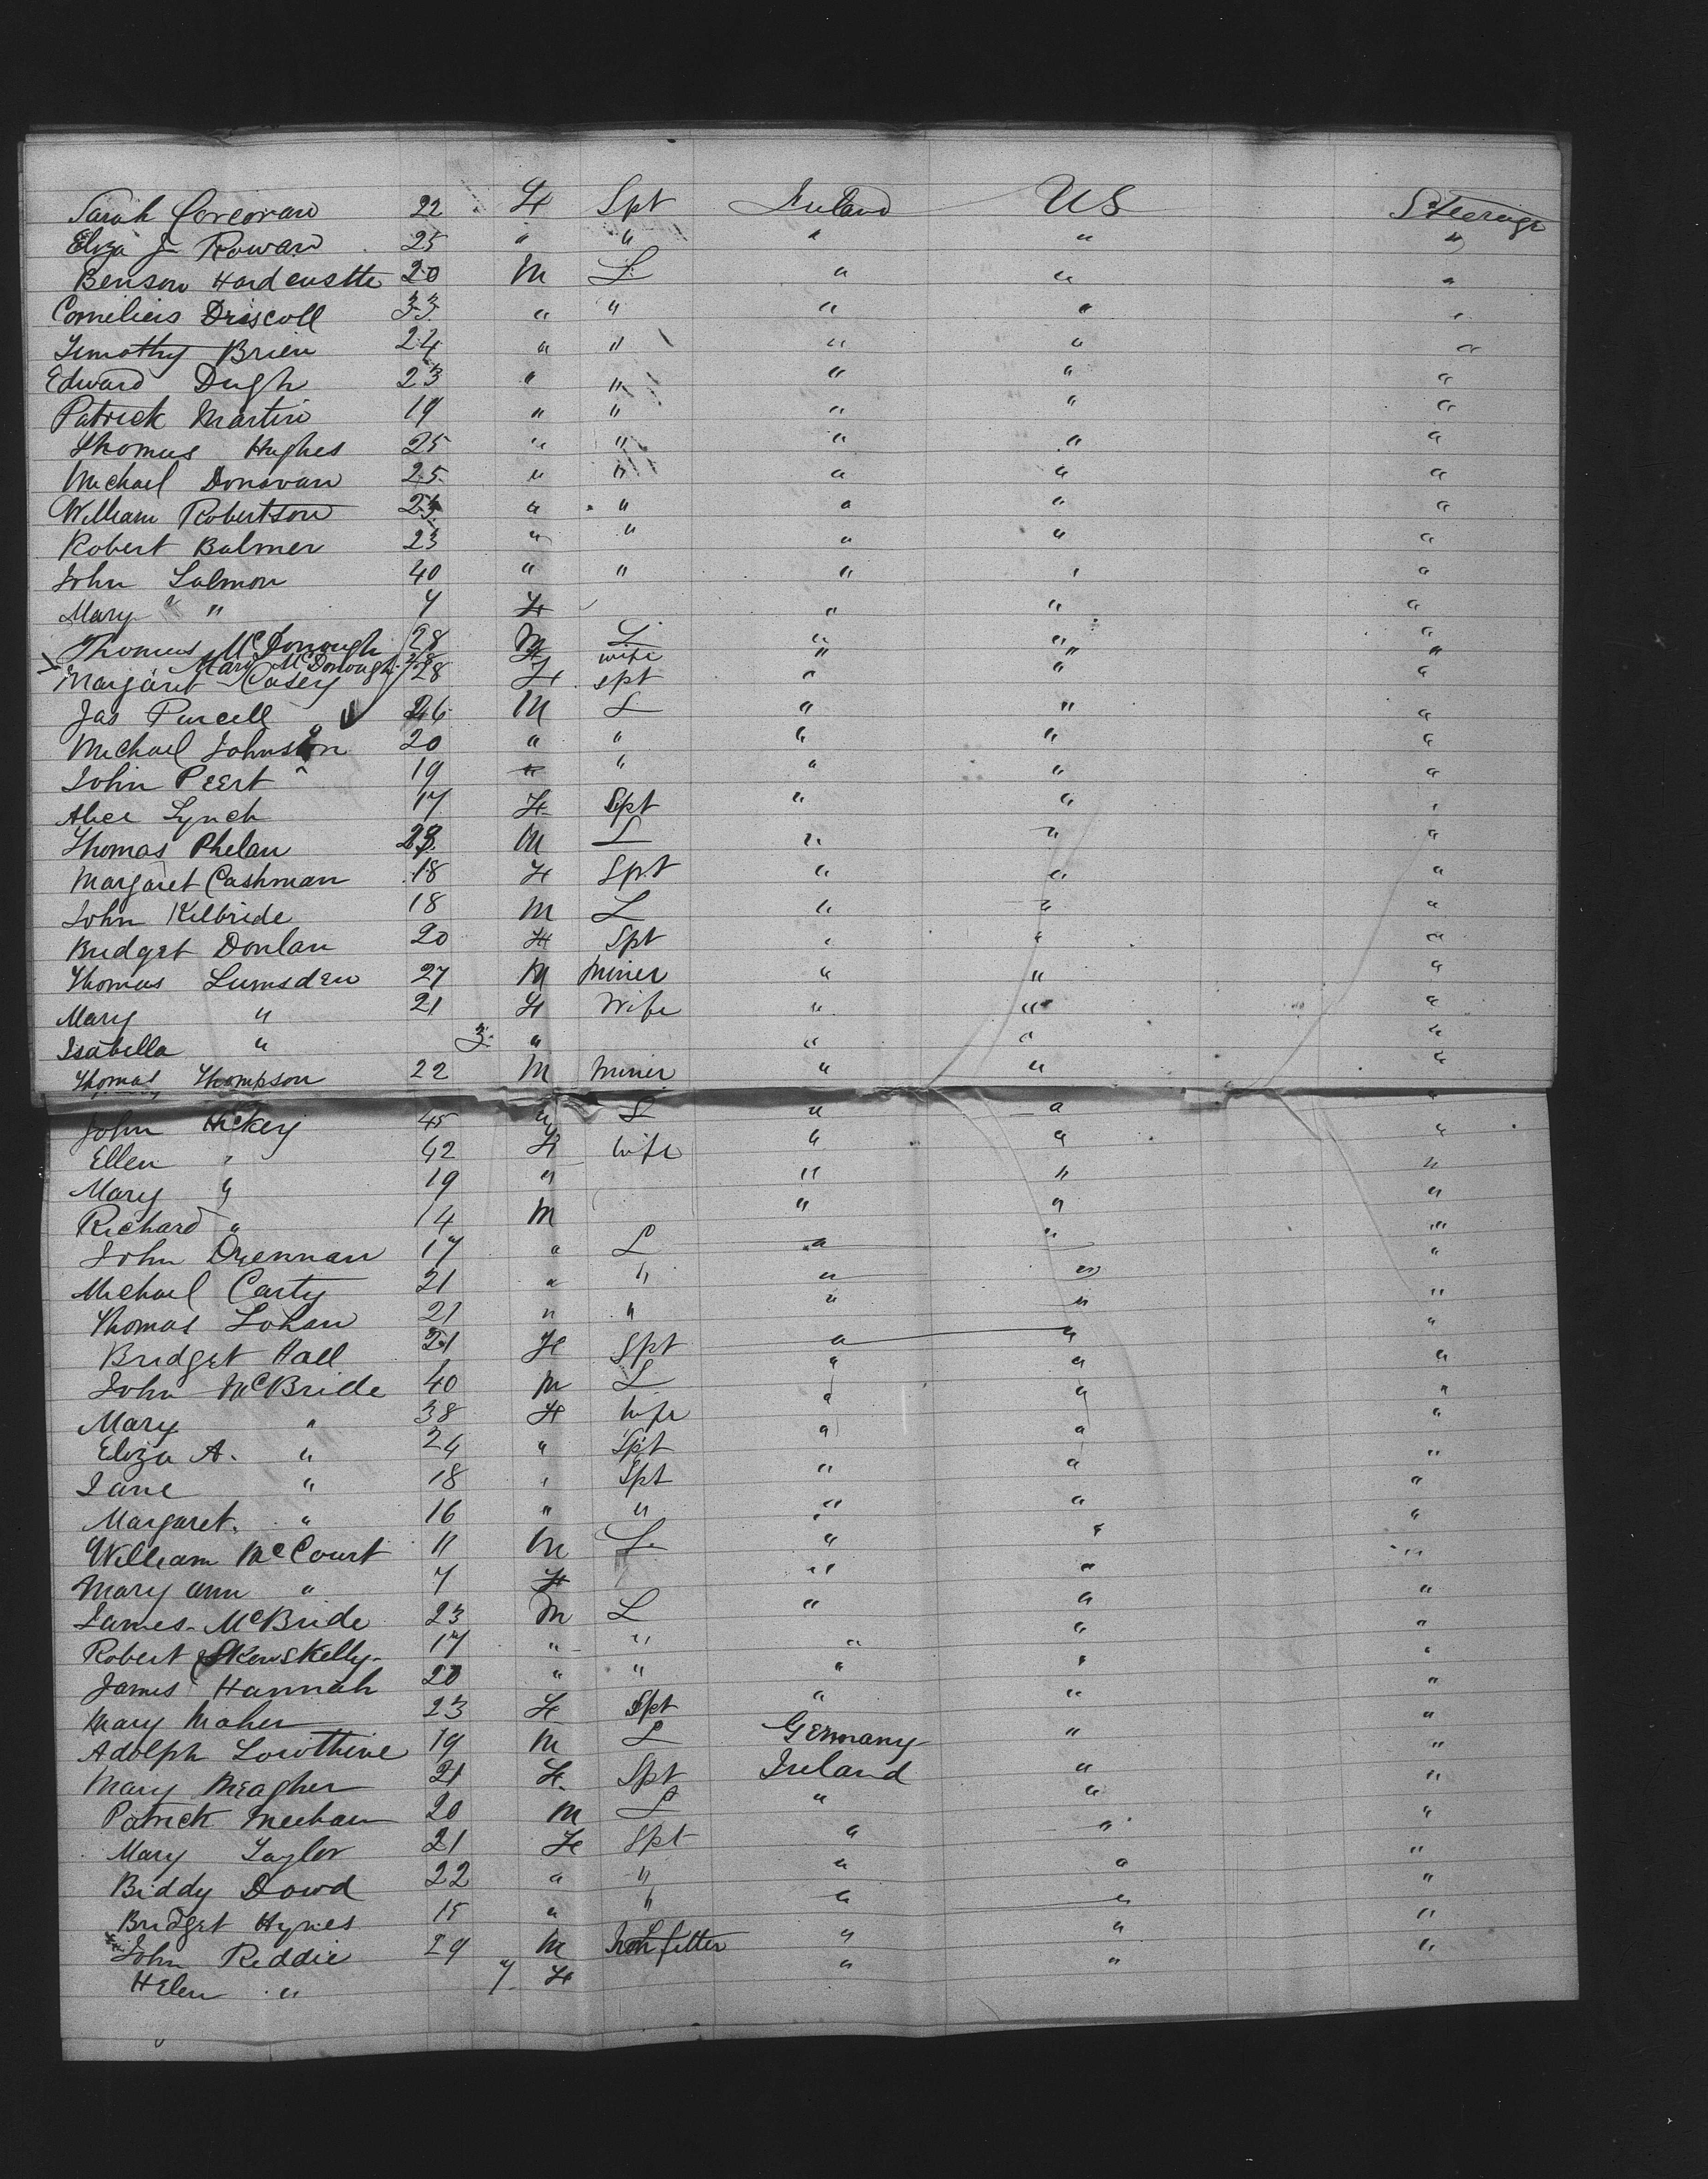 Sarah Corcoran 22 F Spt Ireland US Steerage
Eliza J Rowan 25 " " " " "
Benson Hardcastle 20 M L " " "
Cornelius Driscoll 33 " " " " "
Timothy Brien 24 " " " " "
Edward Dugh 23 " " " " "
Patrick Martin 19 " " " " "
Thomas Hughes 25 " " " " "
Michael Donovan 25 " " " " "
William Robertson " " " " "
Robert Balmer 23 " " " " "
John Salmon 40 " " " " "
Mary " 7 F " " "
Thomas McDonough 28 M L " " "
Mary McDonough 28 F wife " " "
Margaret Casey 28 F spt " " "
Jas Purcell 26 M L " " "
Michael Johnston 20 " " " " "
John Peert 19 " " " " "
Alice Lynch 17 F Spt " " "
Thomas Phelan M L " " "
Margaret Cashman 18 F Spt " " "
John Kilbride 18 M L " " "
Bridget Donlan 20 F Spt " " "
Thomas Lumsden 27 M Miner " " "
Mary " 21 F Wife " " "
Isabella " 3 " " " "
Thomas Thompson 22 M Miner " " "
John Hickey 45 " L " " "
Ellen " 42 F Wife " " "
Mary " 19 " " " "
Richard " 14 M " " "
John Drennan 17 " L " " "
Michael Carty 21 " " " " "
Thomas Lohan 21 " " " " "
Bridget Hall 21 F Spt " " "
John McBride 40 M L " " "
Mary " 38 F Wife " " "
Eliza A. " 24 " Spt " " "
Jane " 18 " Spt " " "
Margaret. " 16 " " " " "
William McCourt 11 M L " " "
Mary Ann " 7 F " " "
James McBride 23 M L " " "
Robert Skewskelly 17 " " " " "
James Hannah 20 " " " " "
Mary Maher 23 F Spt " " "
Adolph Lowthine 19 M L Germany " "
Mary Meagher 21 F Spt Ireland " "
Patrick Meehan 20 M L " " "
Mary Taylor 21 F Spt " " "
Biddy Dowd 22 " " " " "
Bridget Hynes 15 " " " " "
John Reddie 29 M Iron fitter " " "
Helen " 7 F " "